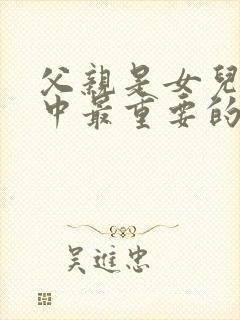 父親是女兒
中最重要的
吳進忠